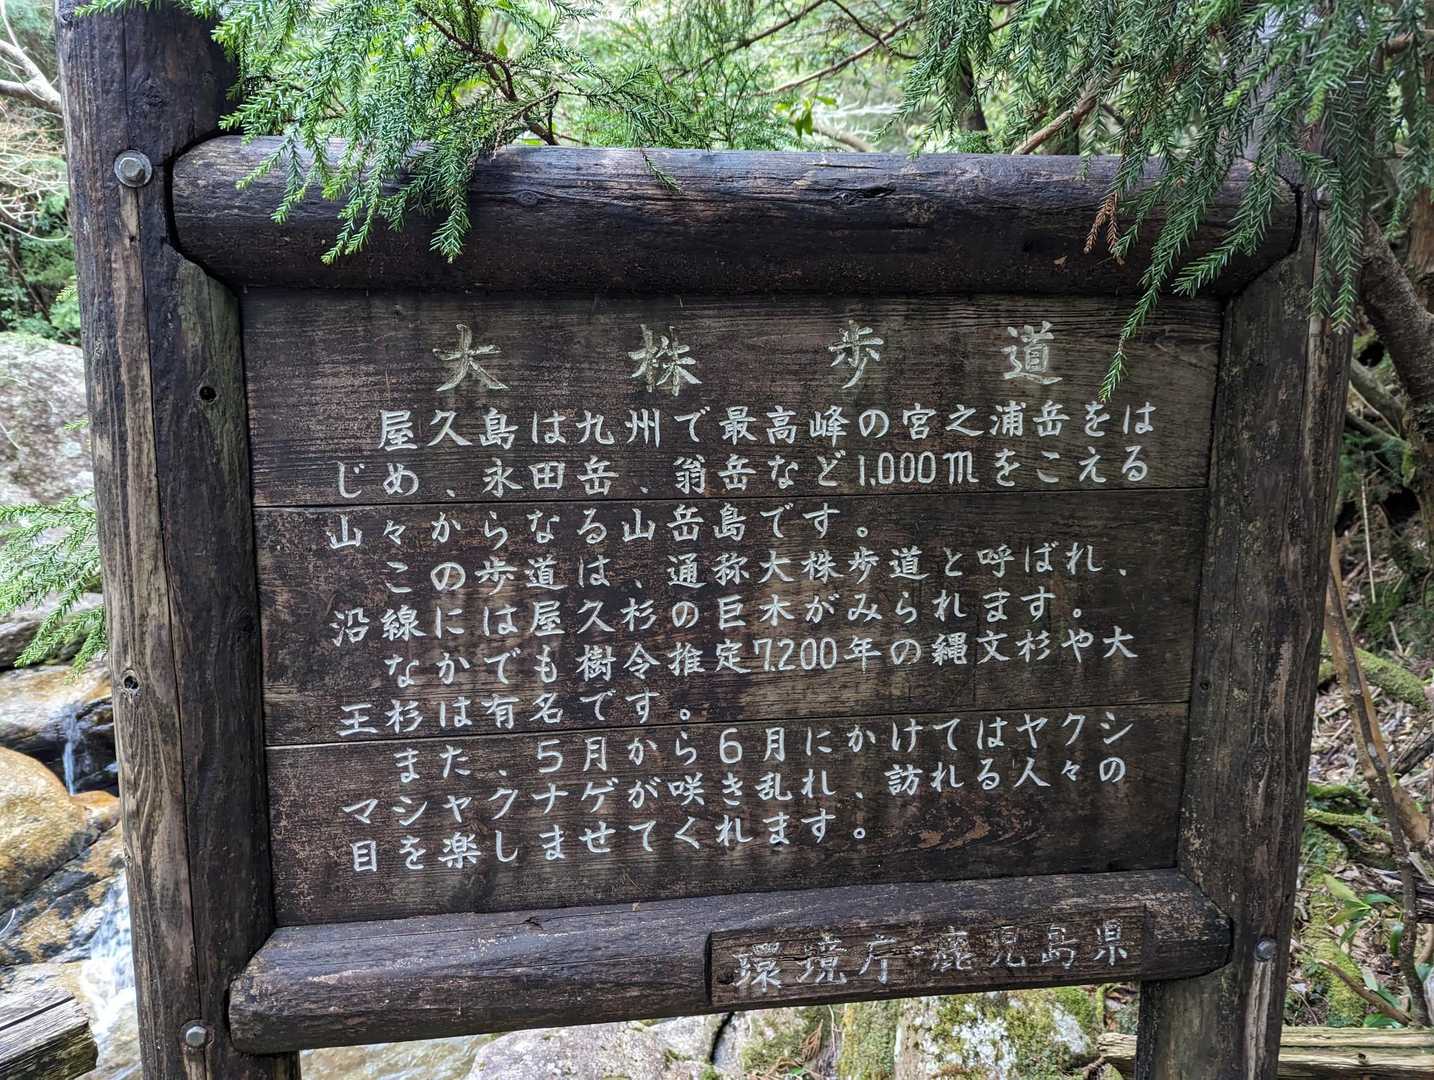 大株歩道
屋久島は九州で最高峰の宮之浦岳をは
じめ、永田岳、翁岳など1.000mをこえる
山々からなる山岳島です。
この歩道は、通称大株歩道と呼ばれ、
沿線には屋久杉の巨木がみられます。
なかでも樹令推定7.200年の縄文杉や大
王杉は有名です。
また、5月から6月にかけてはヤクシ
マシャクナゲが咲き乱れ、訪れる人々の
目を楽しませてくれます。
環境庁・鹿児島県